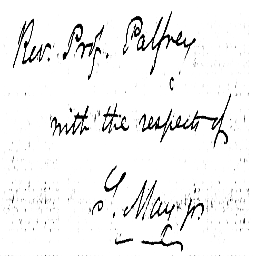 Rev. Prof. Palfrey
with the respects of
S. May jr